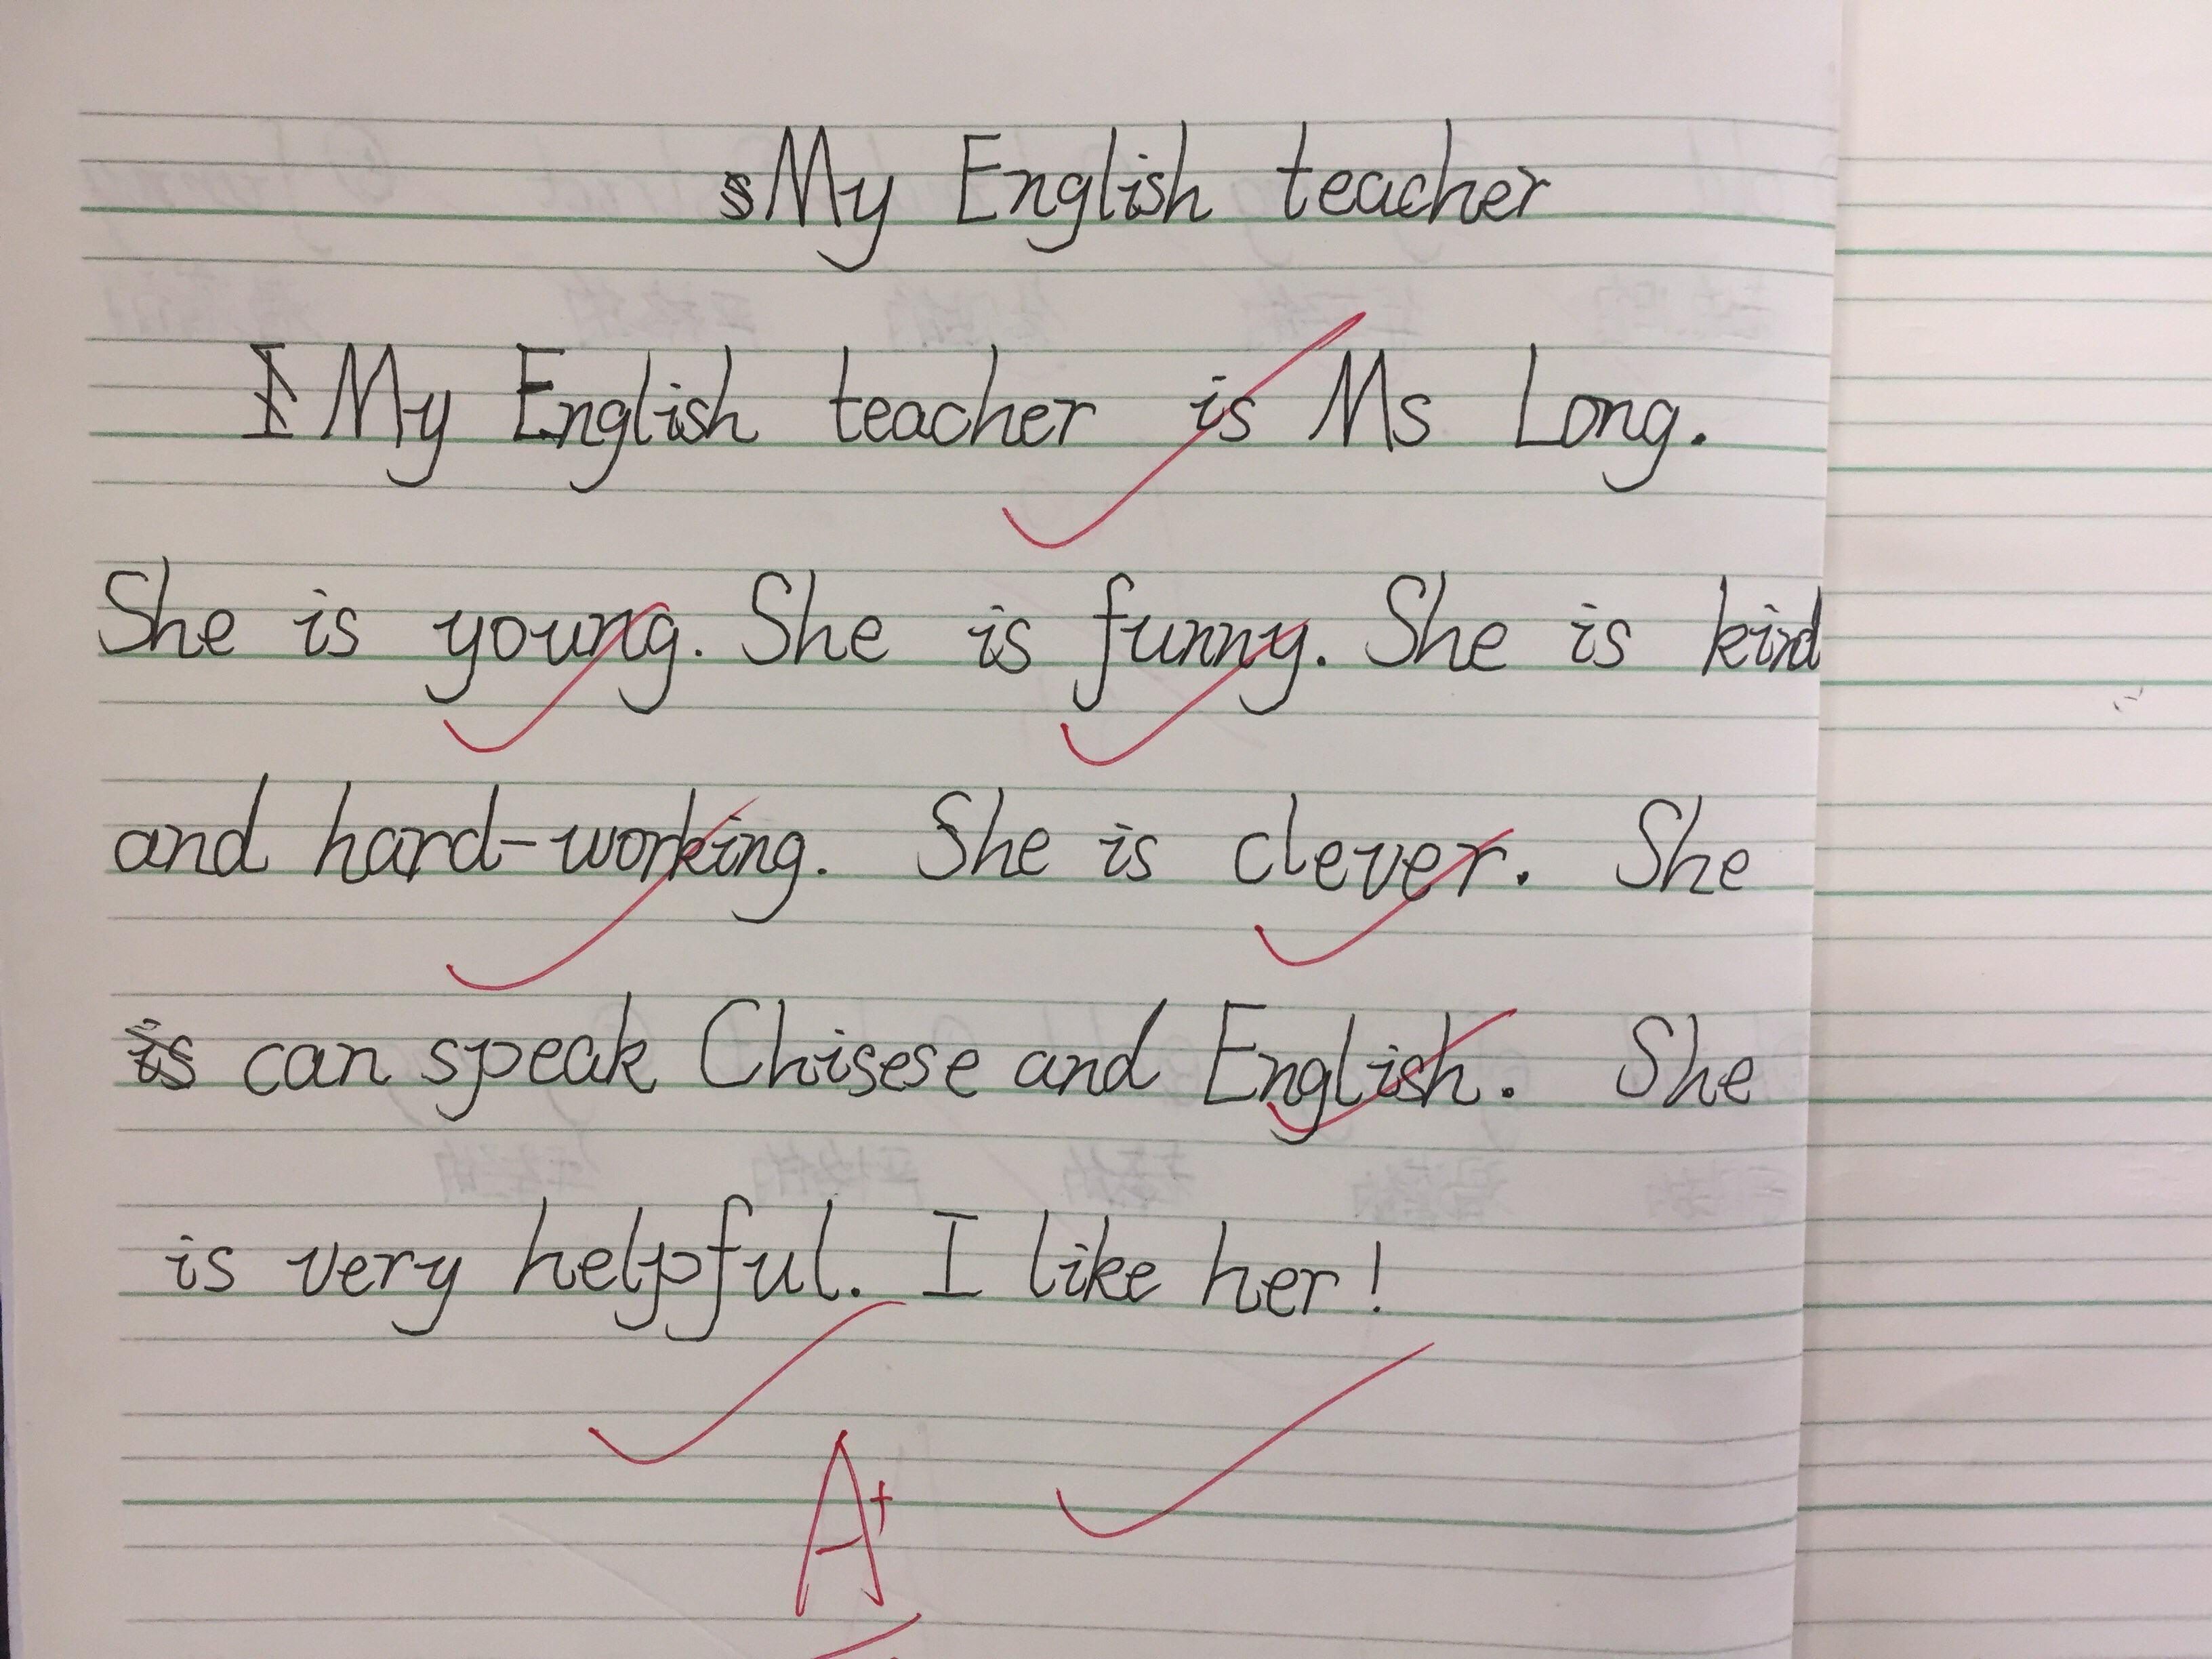 My English teacher
My English teacher is Ms Long.
She is young. She is funny. She is kind
and hard-working. She is clever. She
can speak Chisese and English. She
is very helpful. I like her!
A+